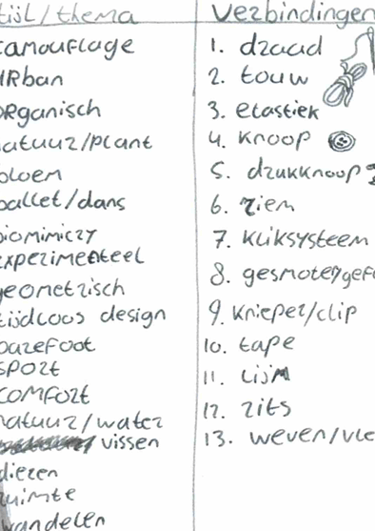 tijl/thema
camouflage
urban
organisch
natuur/plant
bloem
ballet/dans
biomimicry
experimenteel
geometrisch
tijdloos design
barefoot
sport
comfort
natuur/water
vissen
dieren
ruimte
wandelen
Verbindingen
1. draad
2. touw
3. elastiek
4. knoop
5. drukknoop
6. riem
7. kliksysteem
8. gesmolten/gef
9. knieper/clip
10. tape
11. lijm
12. rits
13. weven/vle